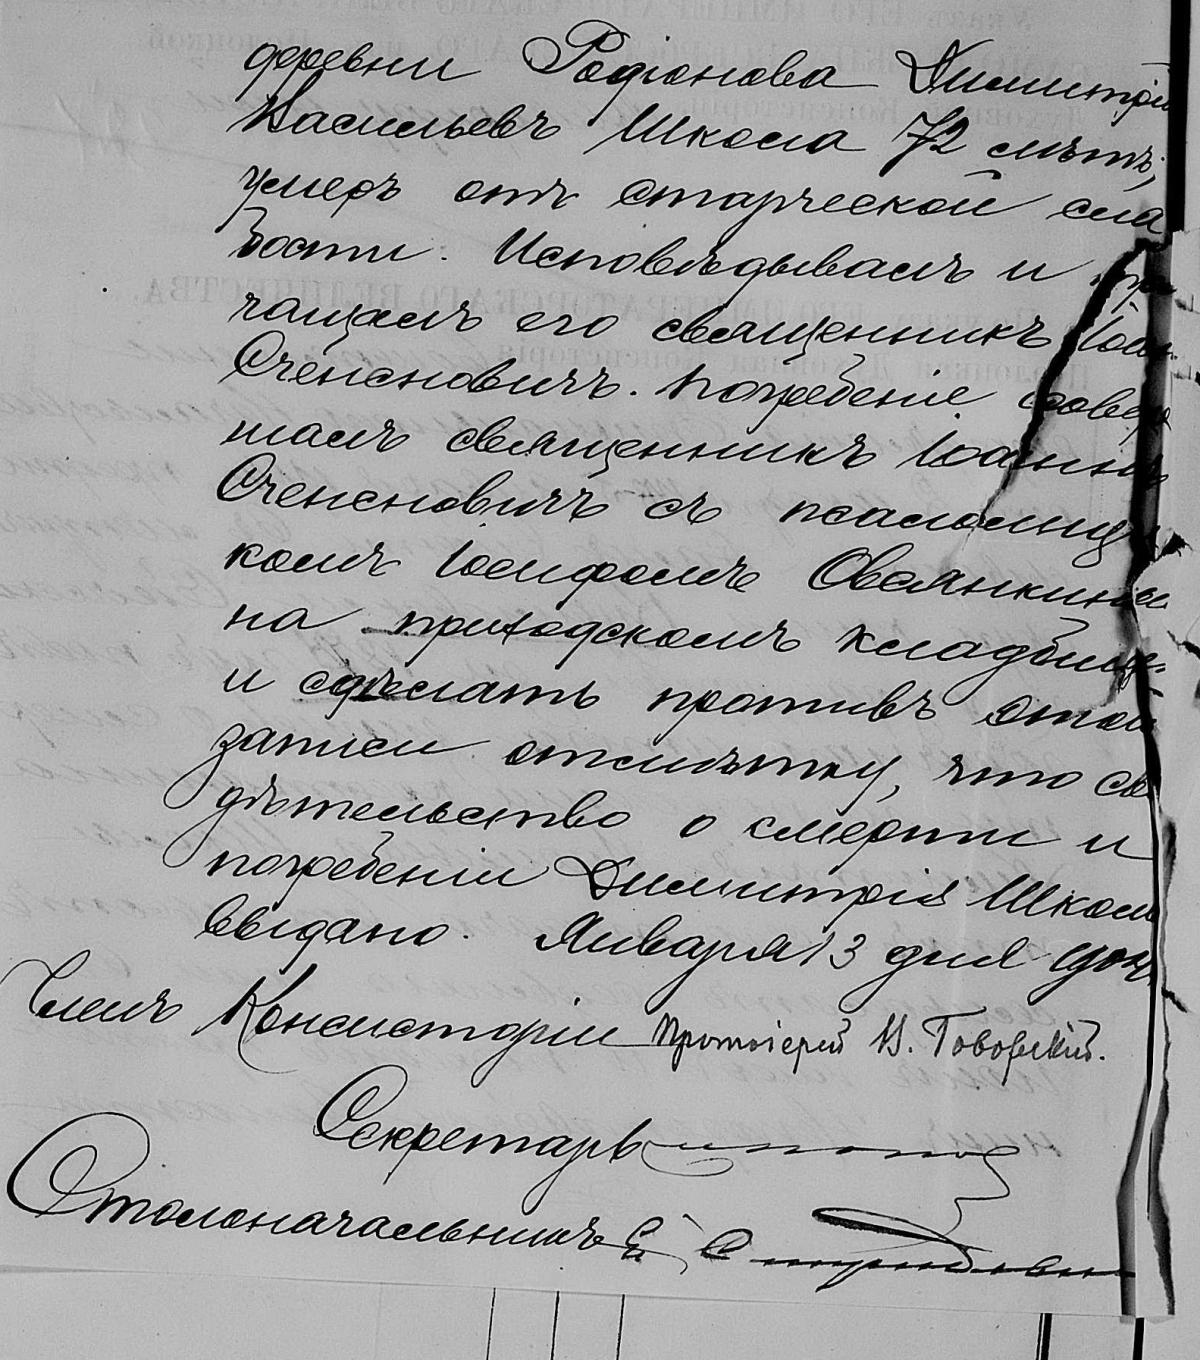 деревни Родіонова Димитрій
Васильевъ Школа 72 лѣтъ,
умеръ отъ старческой сла
бости. Исповѣдывалъ и прі
чащалъ его священникъ Іоан
Сченсновичъ. Погребеніе совер
шалъ священникъ Іоаннъ
Сченсновичъ съ псаломщи
комъ Іосифомъ Овсянкины
на приходскомъ кладбищѣ
и сдѣлать противъ этой
записи отмѣтку, что сви
дѣтельство о смерти и
погребеніи Димитрія Школы
выдано. Января 13 дня
Членъ Консисторіи Протоіерей В. Говорскій.
Секретарь
Столоначальникъ